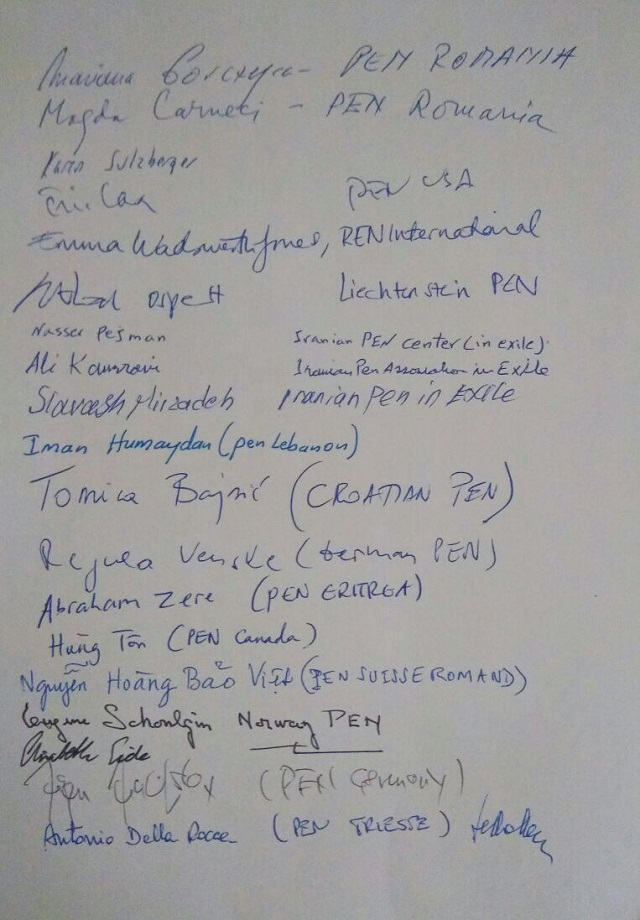 Mariana Gorczyca - PEN ROMANIA
Magda Carneci - PEN Romania
Karin Sulzberger
Eric Lax PEN USA
Emma Wadsworth Jones, PEN International
Ospelt Liechtenstein PEN
Nasser Pejman Iranian PEN center (in exile)
Ali Kamrani Iranian Pen Association in Exile
Siavash Mirzadeh Iranian Pen in Exile
Iman Humaydan (pen Lebanon)
Tomica Bajsić (CROATIAN PEN)
Regula Venske (German PEN)
Abraham Zere (PEN ERITREA)
Hùng Tôn (PEN Canada)
Nguyễn Hoàng Bảo Việt (PEN SUISSE ROMAND)
Eugene Schoulgin Norway PEN
Elisabeth Eide
(PEN Germany)
Antonio Della Rocca (PEN TRIESTE)